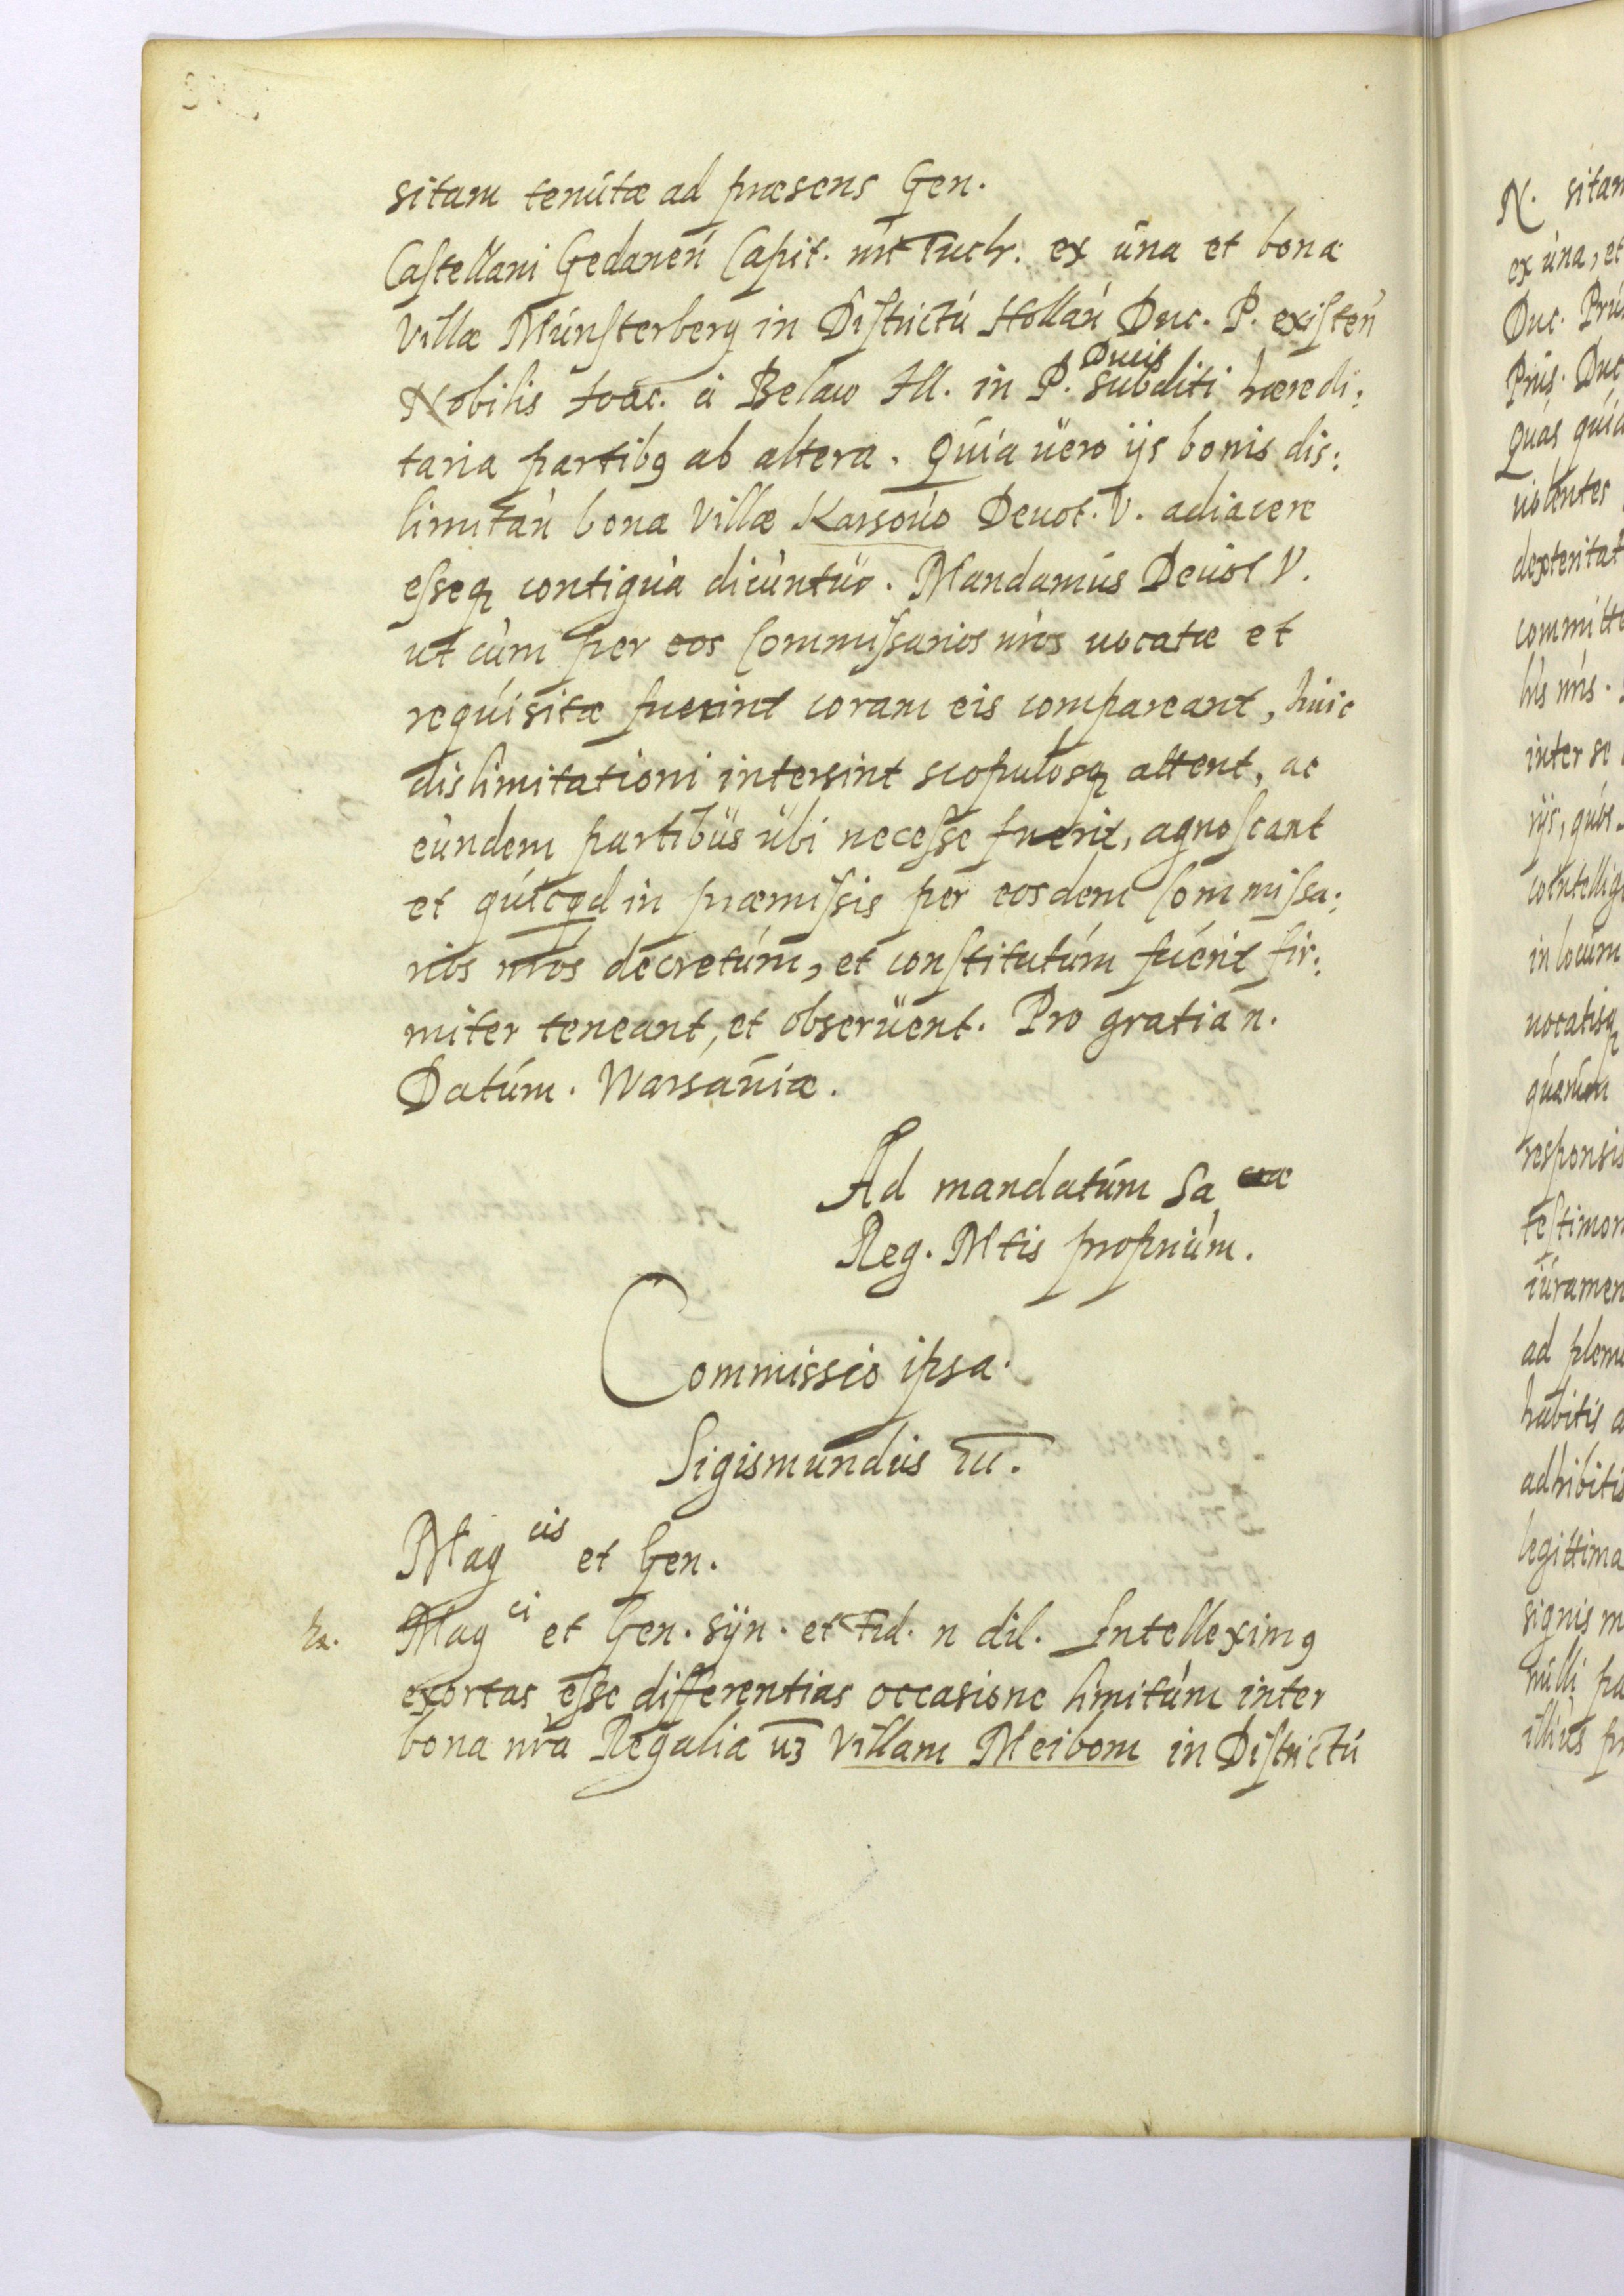 sitam tenutæ ad præsens Gen.
Castellani Gedanen Capit. nri Tuch. ex una et bona
Villæ Münsterberg in Districtu Hollan Duc. P. existen
Nobilis Joac. à Belaw Ill. in P. Ducis subditi hæredi:
taria partibq ab altera. Quia vero ijs bonis dis:
limitan bona Villæ Karsouo Deuot. V. adiacere
esseq contigua dicuntur. Mandamus Deuot V.
ut cum per eos Commissarios nros uocatæ et
requisitæ fuerint coram eis compareant, huic
dislimitationi intersint scopulosq attent, ac
eundem partibus ubi necesse fuerit, agnoscant
et quicqd in præmissis per eosdem Commissa:
rios nros decretum, et constitutum fuerit fir:
miter teneant, et obseruent. Pro gratia n.
Datum. Warsauiæ.
Ad mandatum Sa cræ
Reg. Mtis proprium.
Commissio ipsa.
Sigismundus III.
Mag cis et Gen.
Mag ci et Gen. syn. et Fid. n dil. Intelleximq
exortas esse differentias occasione limitum inter
bona nra Regalia uz Villam Meibom in Districtu
N. sitam
ex una, et
Duc. Prus
Prus. Duc
quas quia
uiolenter
dexteritat
committe
inter se
ijs, quos
cointellige
in locum
uocatisq
quarum
responsis
testimon
iuramen
ad plenu
habitis a
adhibitis
legittima
signis m
nulli pa
illius pr